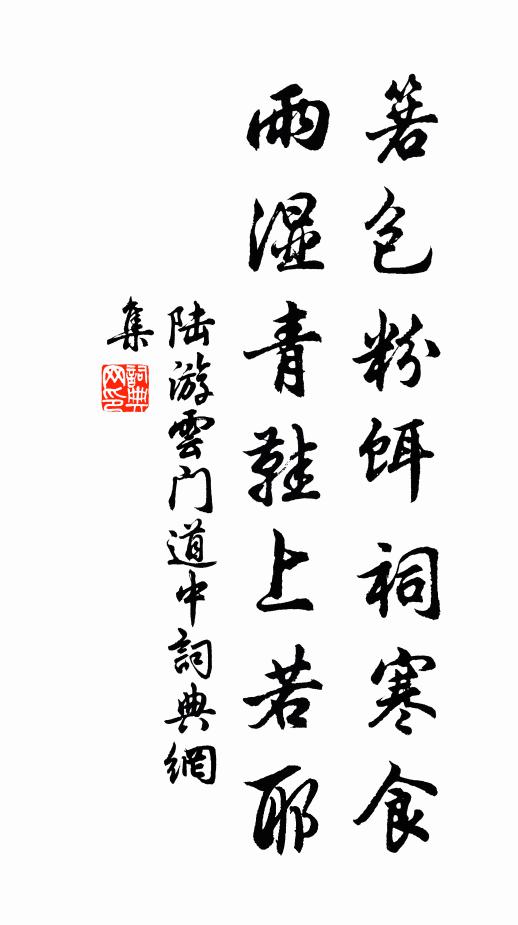 箬包粉餌祠寒食
雨湿青鞋上若耶
陆游雲门道中詞典網
集
詞典
网印